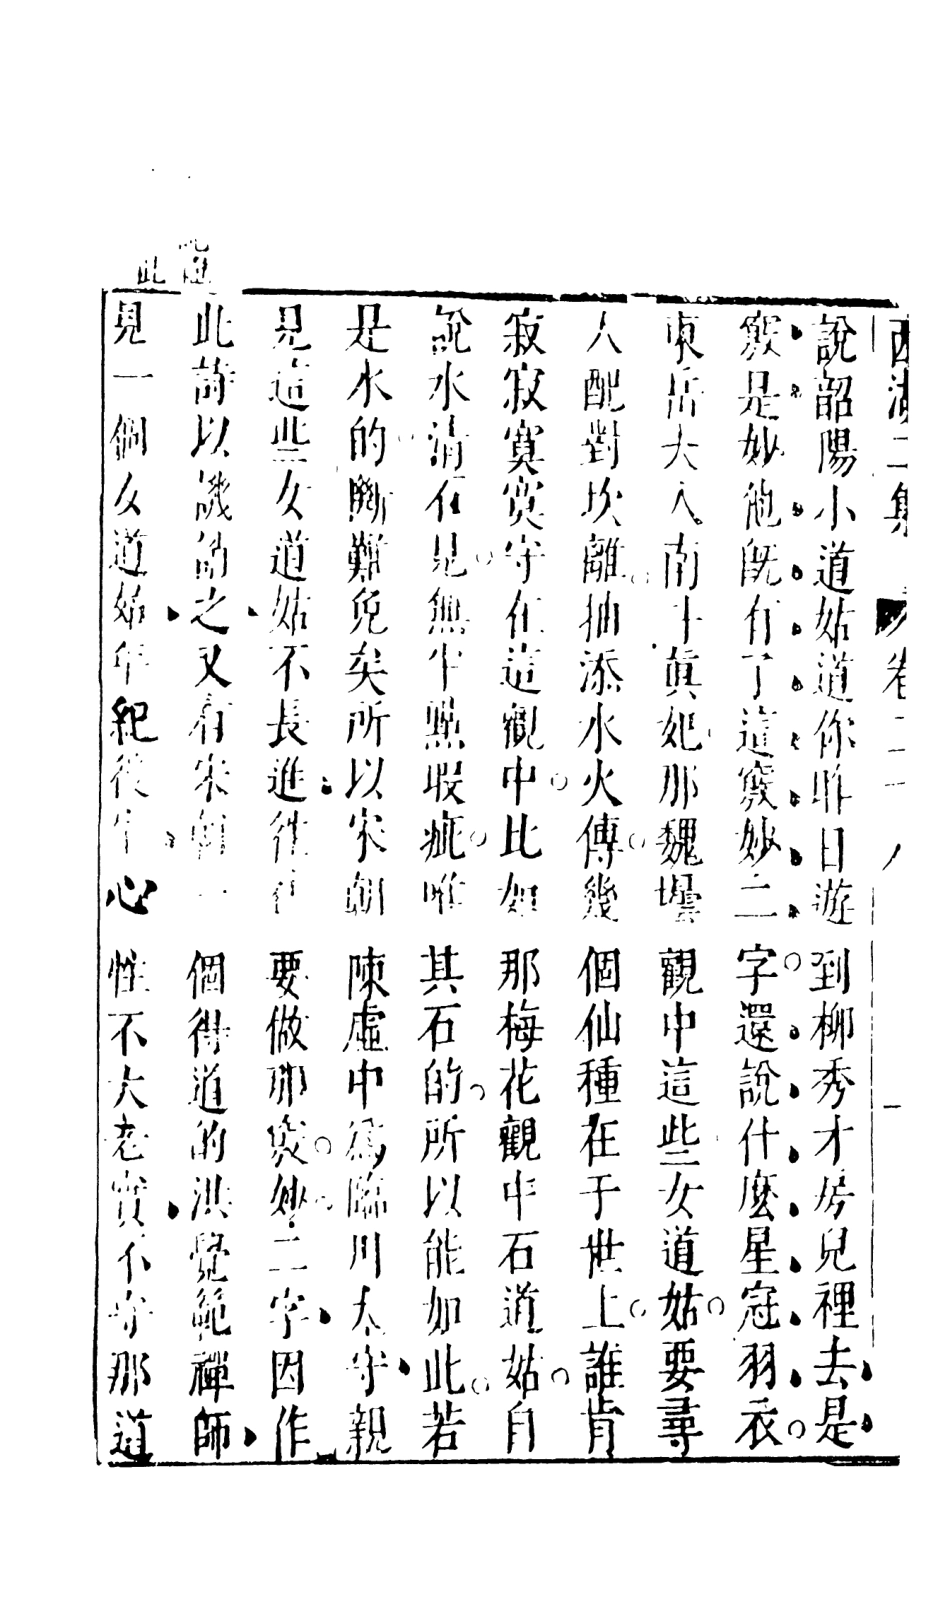 西湖二集 卷二十八
說韶陽小道姑道你昨日遊到柳秀才房兒裡去是
竅是妙他既有了這竅妙二字還說什麼星冠羽衣
東岳夫人南斗真妃那魏壇觀中這些女道姑要尋
人配對坎離抽添水火傳幾個仙種在于世上誰肯
寂寂寞寞守在這觀中比如那梅花觀中石道姑自
說水清石見無半點瑕疵唯其石的所以能如此若
是水的斷難免矣所以宋朝陳虛中為臨川太守親
見這些女道姑不長進往往要做那竅妙二字因作
此詩以譏誚之又有宋朝一個得道的洪覺範禪師
見一個女道姑年紀後生心性不大老實不守那道